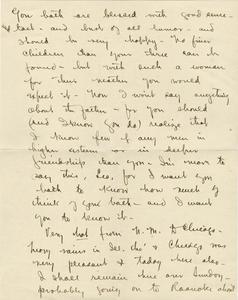 You both are blessed with good sense -
tact - and best of all humor - and
should be very happy - No finer
children than your three can be
found - but with such a woman
for their mother you would
expect it - Now I won't say anything
about the father - for you should
(and I know you do) realize that
I know few if any men in
higher esteem or in deeper
friendship than you - I'm moved to
say this, Leo, for I want you
both to know how much of
think of you both - and I want
you to know it -
Very hot from N. M. to Chicago -
prosy rains in Ill. tho' & Chicago was
very pleasant & today here also -
I shall remain here over Sunday -
probably going on to Roanoke about